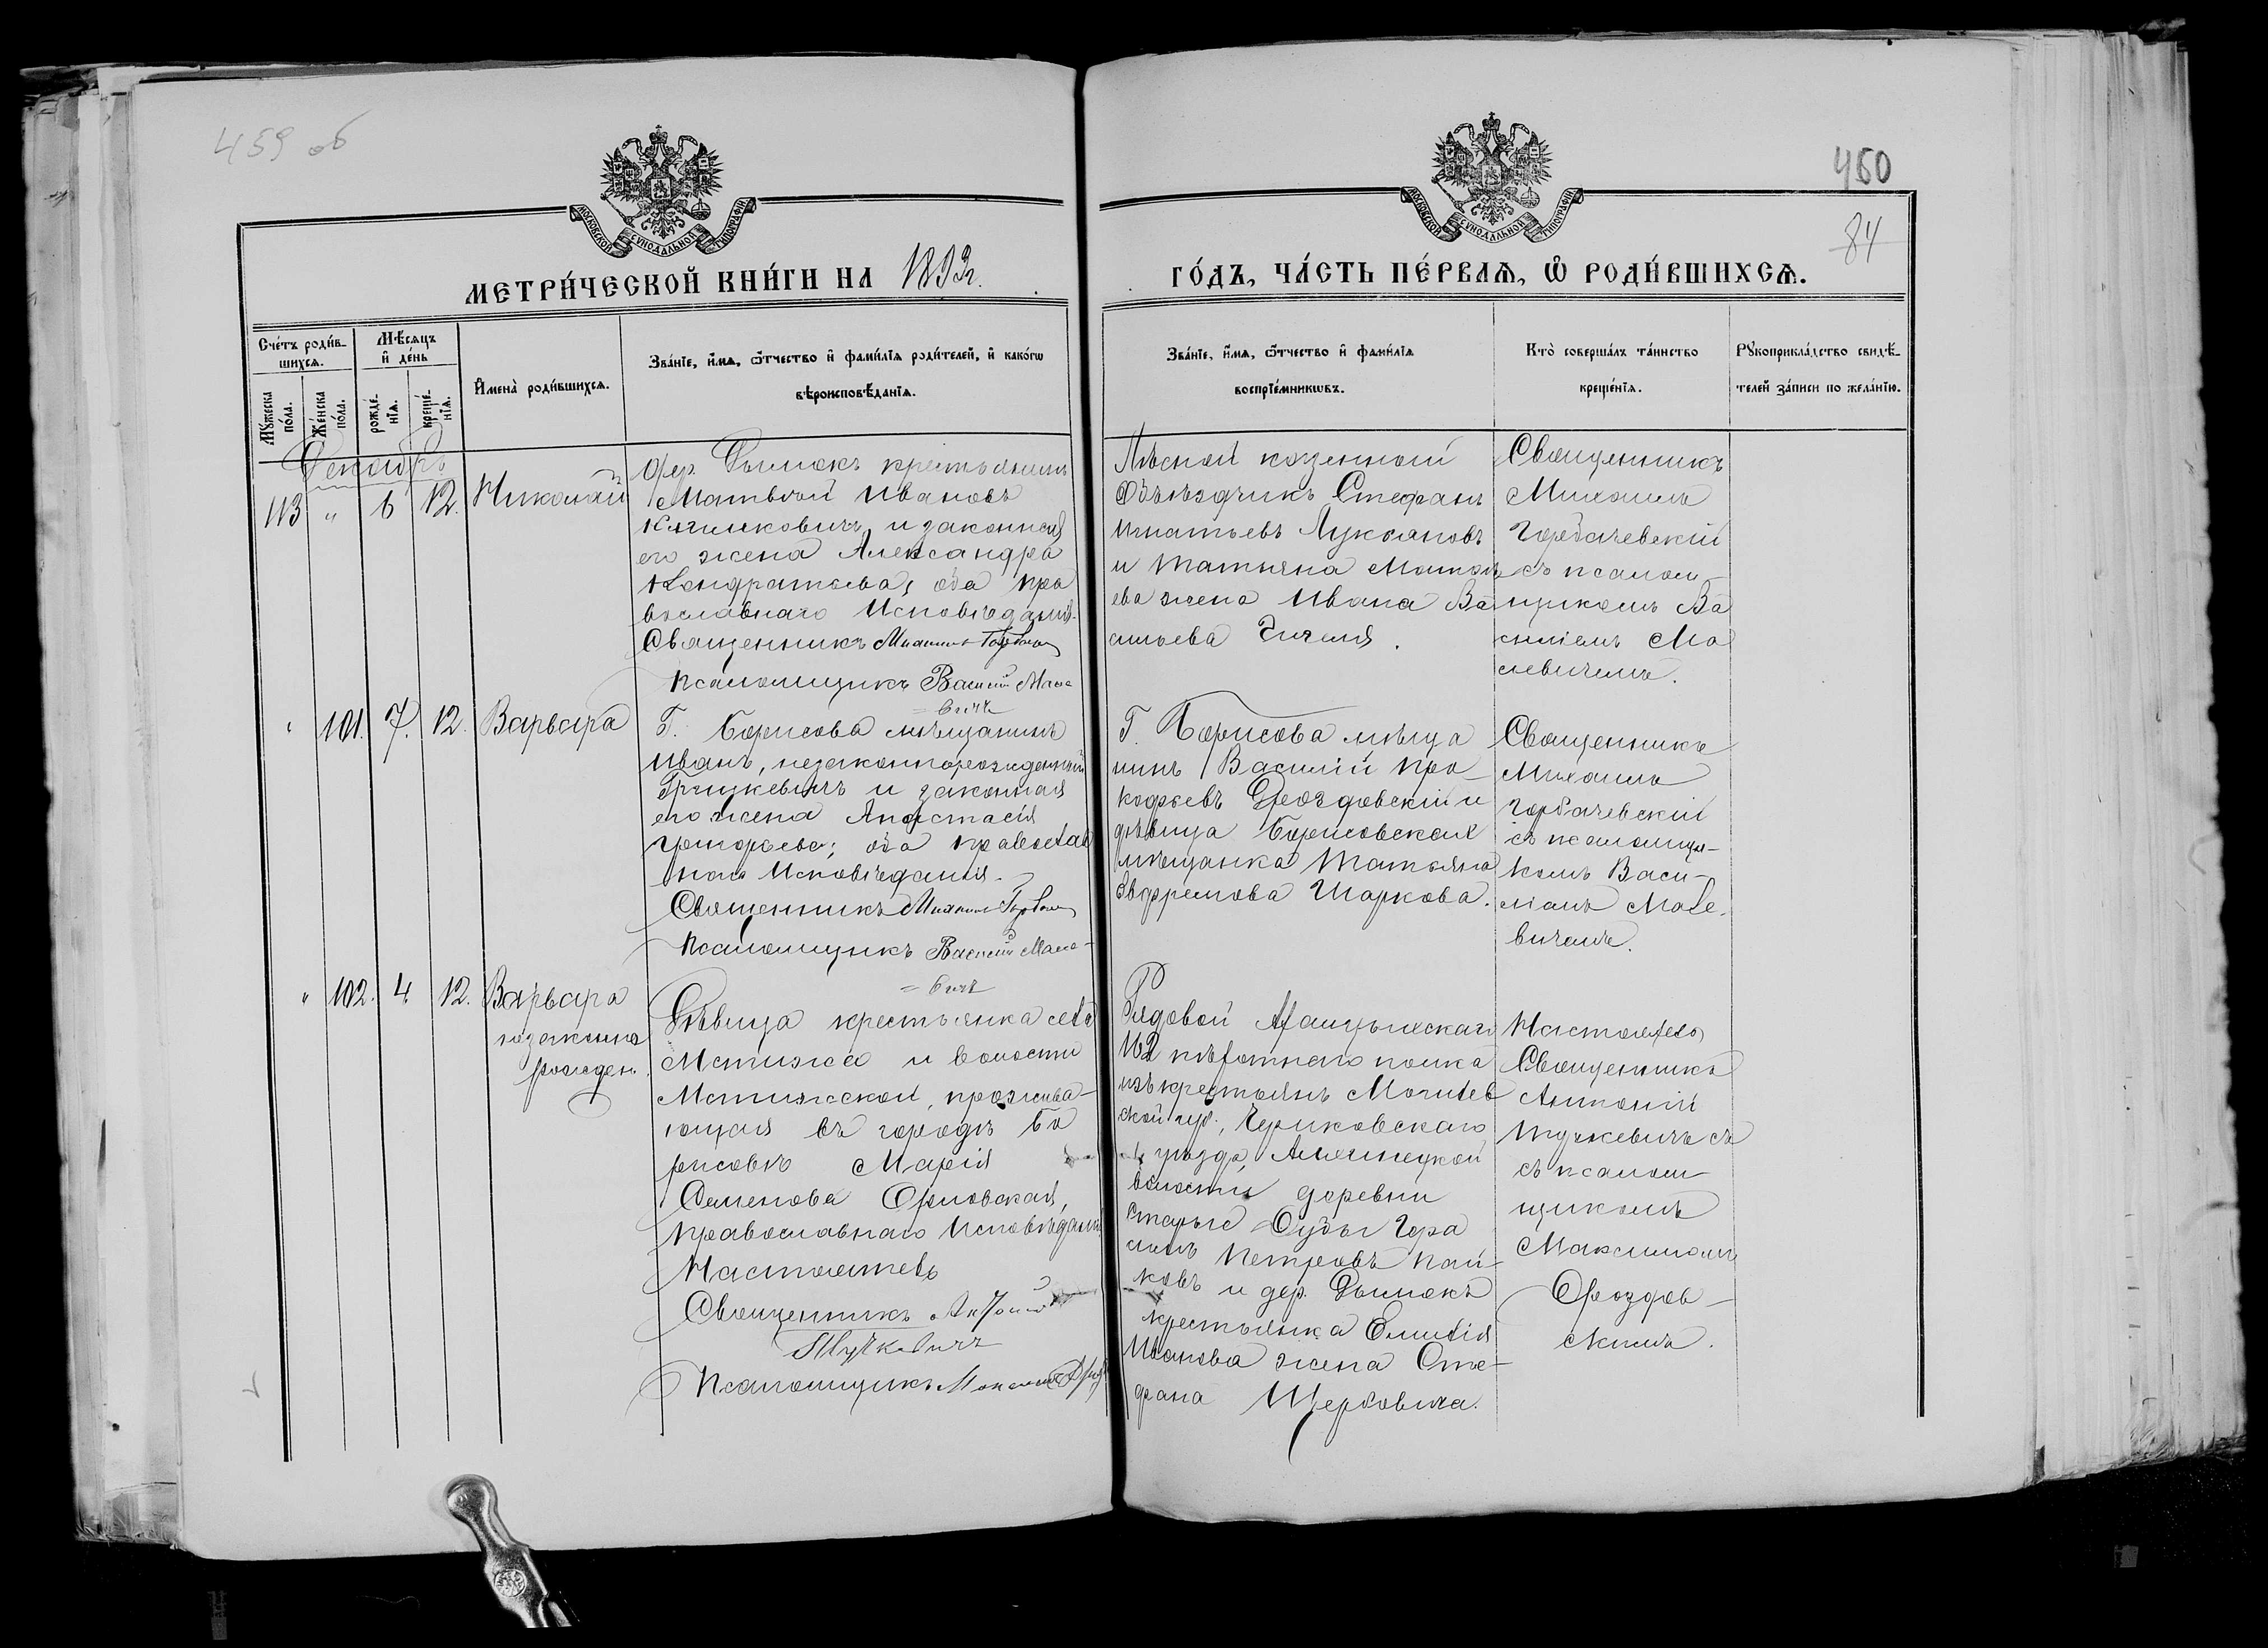 459 об
460
84
МОСКОВСКОЙ СУНОДАЛЬНОЙ ТИПОГРАФІИ
МОСКОВСКОЙ СУНОДАЛЬНОЙ ТИПОГРАФІИ
МЕТРИ́ЧЕСКОЙ КНИ́ГИ НА 1893 г.
ГО́ДЪ, ЧА́СТЬ ПЕ́РВАѦ, Ѡ҆ РОДИ́ВШИХСѦ.
Сче́тъ роди́в-
шихсѧ.
Мꙋ́жеска по́ла.
Же́нска по́ла.
Мѣ́сѧцъ
и҆ де́нь
рожде́-нїѧ.
креще́-нїѧ.
И҆мена̀ роди́вшихсѧ.
Зва́нїе, и҆́мѧ, ѻ҆́тчество и҆ фами́лїѧ роди́телей, и҆ како́гѡ
вѣроисповѣ́данїѧ.
Зва́нїе, и҆́мѧ, ѻ҆́тчество и҆ фами́лїѧ
воспрїе́мникѡвъ.
Кто̀ соверша́лъ та́инство
креще́нїѧ.
Рꙋкоприкла́дство свидѣ́-
телей за́писи по жела́нїю.
Декабрь
113 " 6 12. Николай
дер. Дымокъ крестьянинъ
Матвѣй Ивановъ
и законная
его жена Александра
Кондратьева, оба пра
вославнаго Исповѣданія.
Священникъ Михаилъ
Псаломщикъ Василій Мале-
=вичъ
Лѣсной казенной
Объѣздчикъ Стефанъ
Игнатьевъ Лукьяновъ
и Татьяна Матвѣ
ева жена Ивана Ва
сильева
Священникъ
Михаилъ
Горбачевскій
съ псалом-
щикомъ Ва
силіемъ Ма
левичемъ.
" 101. 7. 12. Варвара
Г. Борисова мѣщанинъ
Иванъ, незаконнорожденный
Грицкевичъ и законная
его жена Анастасія
Григорьева; оба православ
наго Исповѣданія.
Священникъ Михаилъ
Псаломщикъ Василій Мале-
=вичъ
Г. Борисова мѣща
нинъ Василій Про-
кофьевъ Дроздовскій и
дѣвица Борисовская
мѣщанка Татьяна
Евфремова Шаркова.
Священникъ
Михаилъ
Горбачевскій
съ псаломщи-
комъ Васи-
ліемъ Мале-
вичемъ.
" 102. 4. 12. Варвара
незаконно
рожден.
Дѣвица крестьянка села
Мстижа и волости
Мстижской, прожива-
ющая въ городѣ Бо
рисовѣ Марія
Семенова Орловская,
православнаго Исповѣданія
Настоятель
Священникъ Антоній
Тучкевичъ
Псаломщикъ Максимъ
Рядовой
162 пѣхотнаго полка
изъ крестьянъ Могилев
ской губ., Чериковскаго
уѣзда,
волости деревни
Старые Гера
симъ Петровъ Пай-
ковъ и дер. Дымокъ
крестьянка Емилія
Иванова жена Сте-
фана Щербовича.
Настоятель
Священникъ
Антоній
Тучкевичъ съ
съ псалом
щикомъ
Максимомъ
Дроздов-
скимъ.